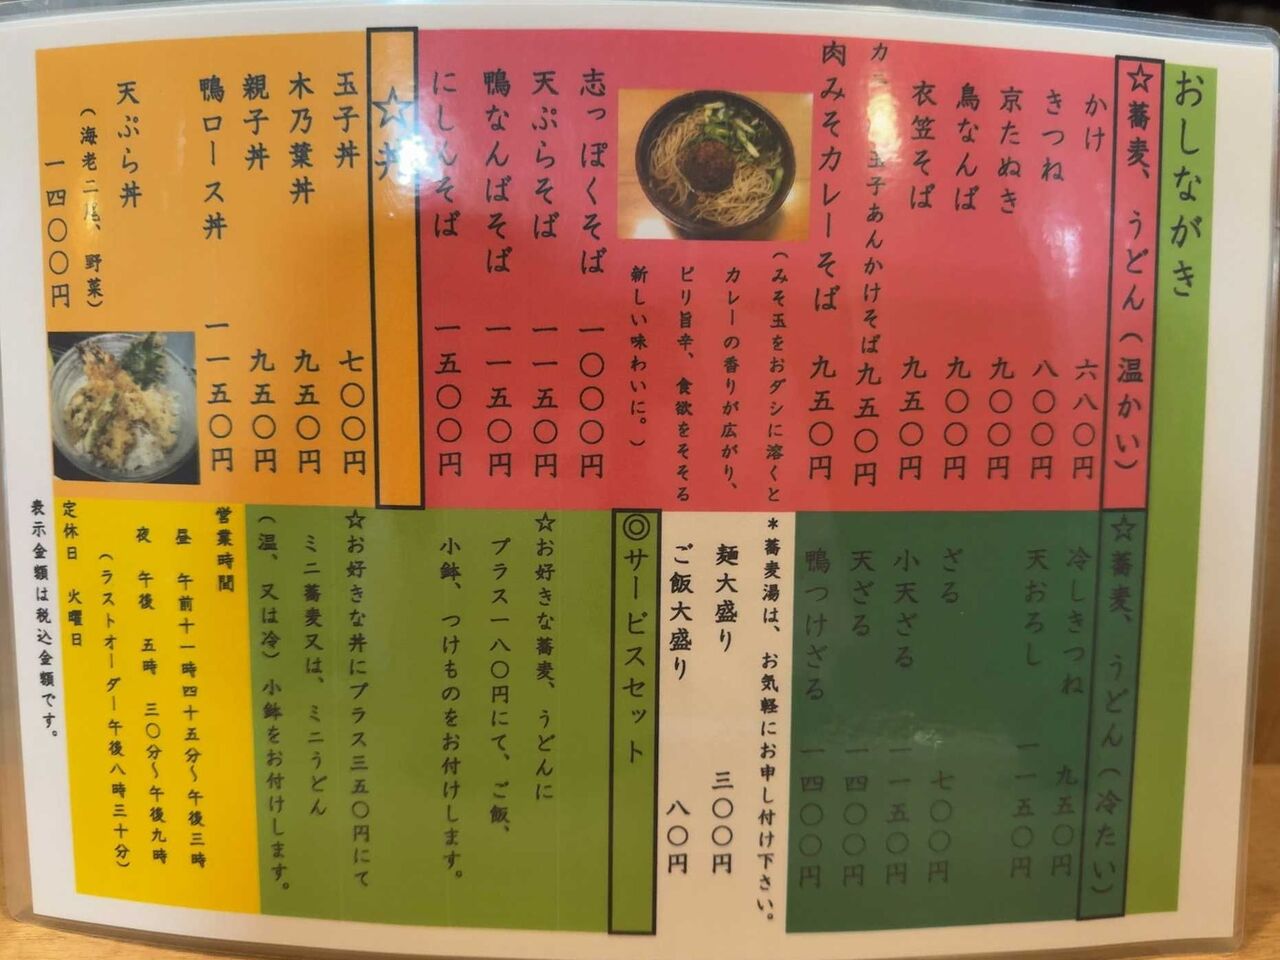 おしながき
☆蕎麦、うどん(温かい)
かけ 六八〇円
きつね 八〇〇円
京たぬき 九〇〇円
鳥なんば 九〇〇円
衣笠そば 九五〇円
玉子あんかけそば 九五〇円
肉みそカレーそば 九五〇円
(みそ玉をおダシに溶くと
カレーの香りが広がり、
ピリ旨辛、食欲をそそる
新しい味わいに。)
志っぽくそば 一〇〇〇円
天ぷらそば 一一五〇円
鴨なんばそば 一一五〇円
にしんそば 一五〇〇円
☆丼
玉子丼 七〇〇円
木乃葉丼 九五〇円
親子丼 九五〇円
鴨ロース丼 一一五〇円
天ぷら丼
(海老二尾、野菜)
一四〇〇円
☆蕎麦、うどん(冷たい)
冷しきつね 九五〇円
天おろし 一一五〇円
ざる 七〇〇円
小天ざる 一一五〇円
天ざる 一四〇〇円
鴨つけざる 一四〇〇円
*蕎麦湯は、お気軽にお申し付け下さい。
麺大盛り 三〇〇円
ご飯大盛り 八〇円
◎サービスセット
☆お好きな蕎麦、うどんに
プラス一八〇円にて、ご飯、
小鉢、つけものをお付けします。
☆お好きな丼にプラス三五〇円にて
ミニ蕎麦又は、ミニうどん
(温、又は冷)小鉢をお付けします。
営業時間
昼 午前十一時四十五分～午後三時
夜 午後 五時 三〇分～午後九時
(ラストオーダー午後八時三十分)
定休日 火曜日
表示金額は税込金額です。